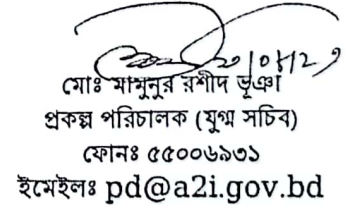 মোঃ মামুনুর রশীদ ভূঞা
প্রকল্প পরিচালক (যুগ্ম সচিব)
ফোনঃ ৫৫০০৬৯৩১
ইমেইলঃ pd@a2i.gov.bd